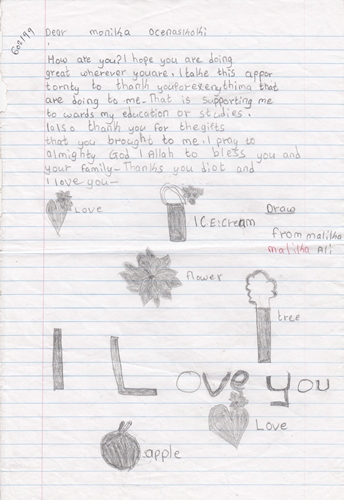 Goz/99
Dear monika ocenasikoki
How are you? I hope you are doing
great wherever youare. I take this appor
tornty to thank youforeverythima that
are doing to me. That is supporting me
to wards my education or studies.
Ialso thank you for thegifts
that you brought to me. I pray to
almighty God I Allah to bless you and
your family- Thanks you diot and
I love you-
Love
ICEicream
Draw
from malika
malika Ali
flower
tree
I Love you
Love
apple